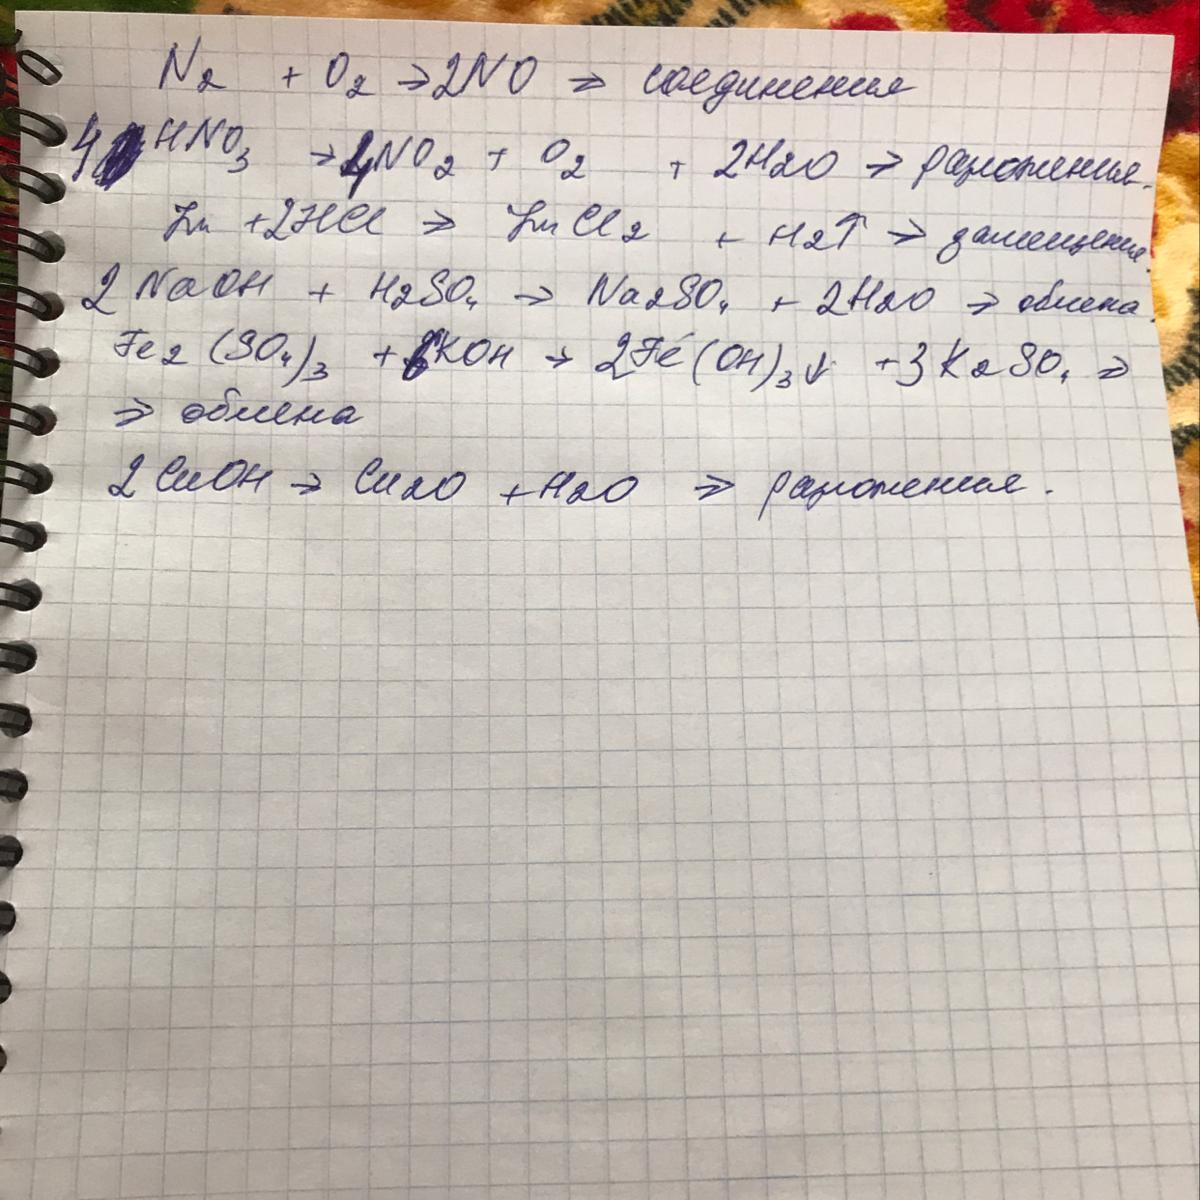 N2 + O2 → 2NO ⇒ соединения
4 HNO3 → 4NO2 + O2 + 2H2O ⇒ разложения.
Zn + 2HCl ⇒ ZnCl2 + H2↑ ⇒ замещения.
2 NaOH + H2SO4 → Na2SO4 + 2H2O ⇒ обмена.
Fe2(SO4)3 + 6KOH → 2Fe(OH)3↓ + 3K2SO4 ⇒
⇒ обмена
2CuOH → Cu2O + H2O ⇒ разложения.